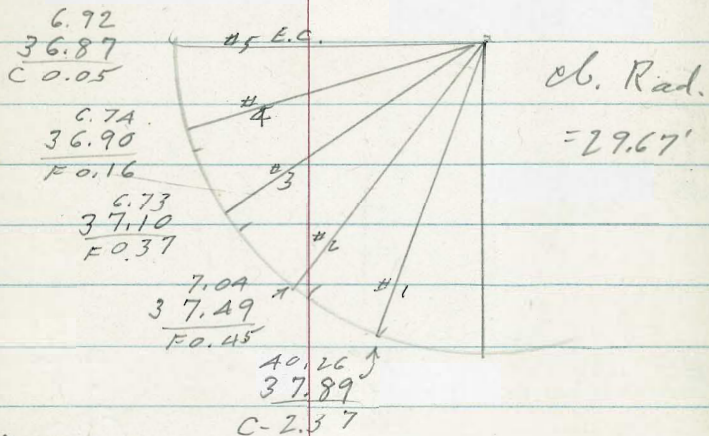 6.92
36.87
C 0.05
#5 E.C.
cb. Rad.
= 29.67'
6.74
36.90
F 0.16
#4
6.73
37.10
F 0.37
#3
7.04
37.49
F 0.45
#2
40.26
37.89
C-2.37
#1